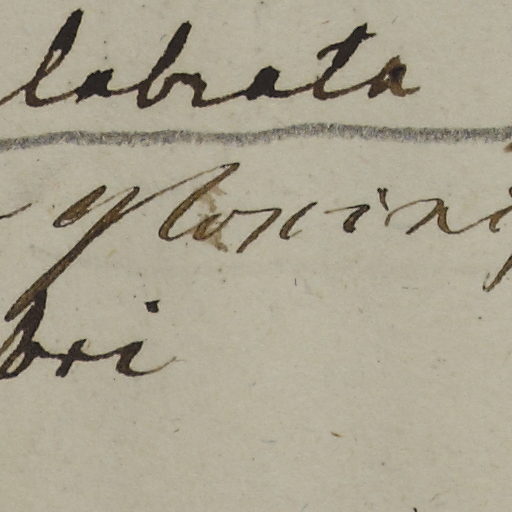 labrata
gloxini
bri